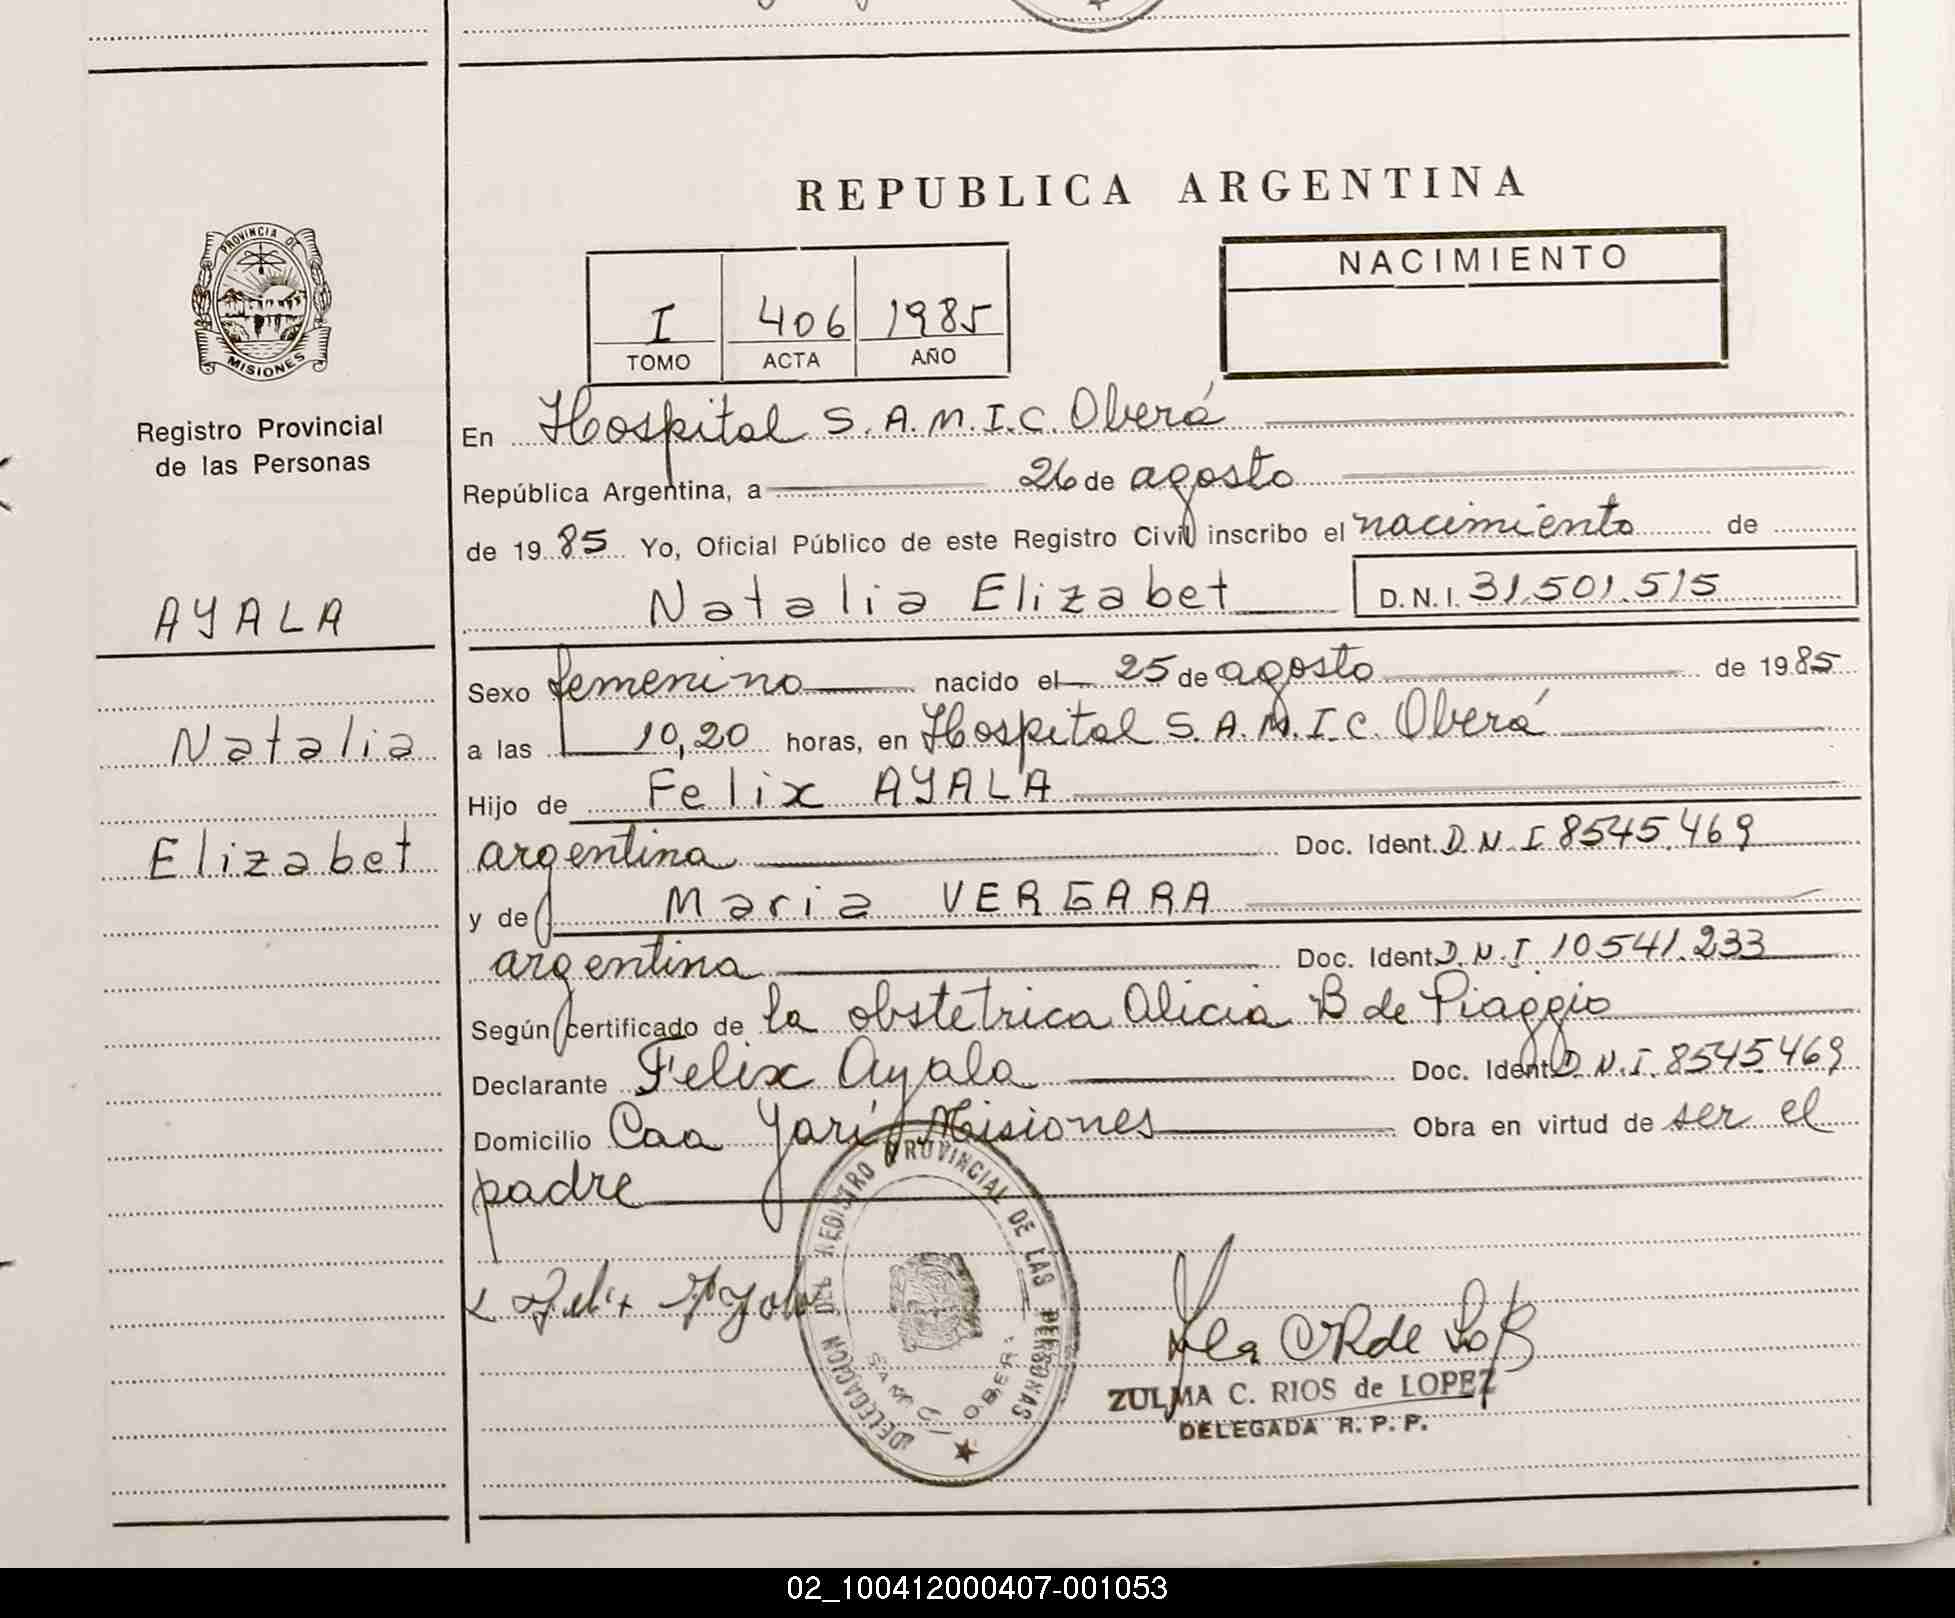 REPUBLICA ARGENTINA
PROVINCIA DE
MISIONES
Registro Provincial
de las Personas
I 406 1985
TOMO ACTA AÑO
NACIMIENTO
En Hospital S.A.M.I.C. Oberá
República Argentina, a 26 de agosto
de 1985 Yo, Oficial Público de este Registro Civil inscribo el nacimiento de
Natalia Elizabet D.N.I. 31.501.515
AYALA
Natalia
Elizabet
Sexo femenino nacido el 25 de agosto de 1985
a las 10,20 horas, en Hospital S.A.M.I.C. Oberá
Hijo de Felix AYALA
argentina Doc. Ident. D.N.I 8545.469
y de Maria VERGARA
argentina Doc. Ident. D.N.I. 10541.233
Según certificado de la obstetrica Alicia B de Piaggio
Declarante Felix Ayala Doc. Ident. D.N.I. 8545469
Domicilio Caa Yarí Misiones Obra en virtud de ser el
padre
Felix Ayala
DELEGACION DEL REGISTRO PROVINCIAL DE LAS PERSONAS
OBERA
ZULMA C. RIOS de LOPEZ
DELEGADA R. P. P.
02_100412000407-001053